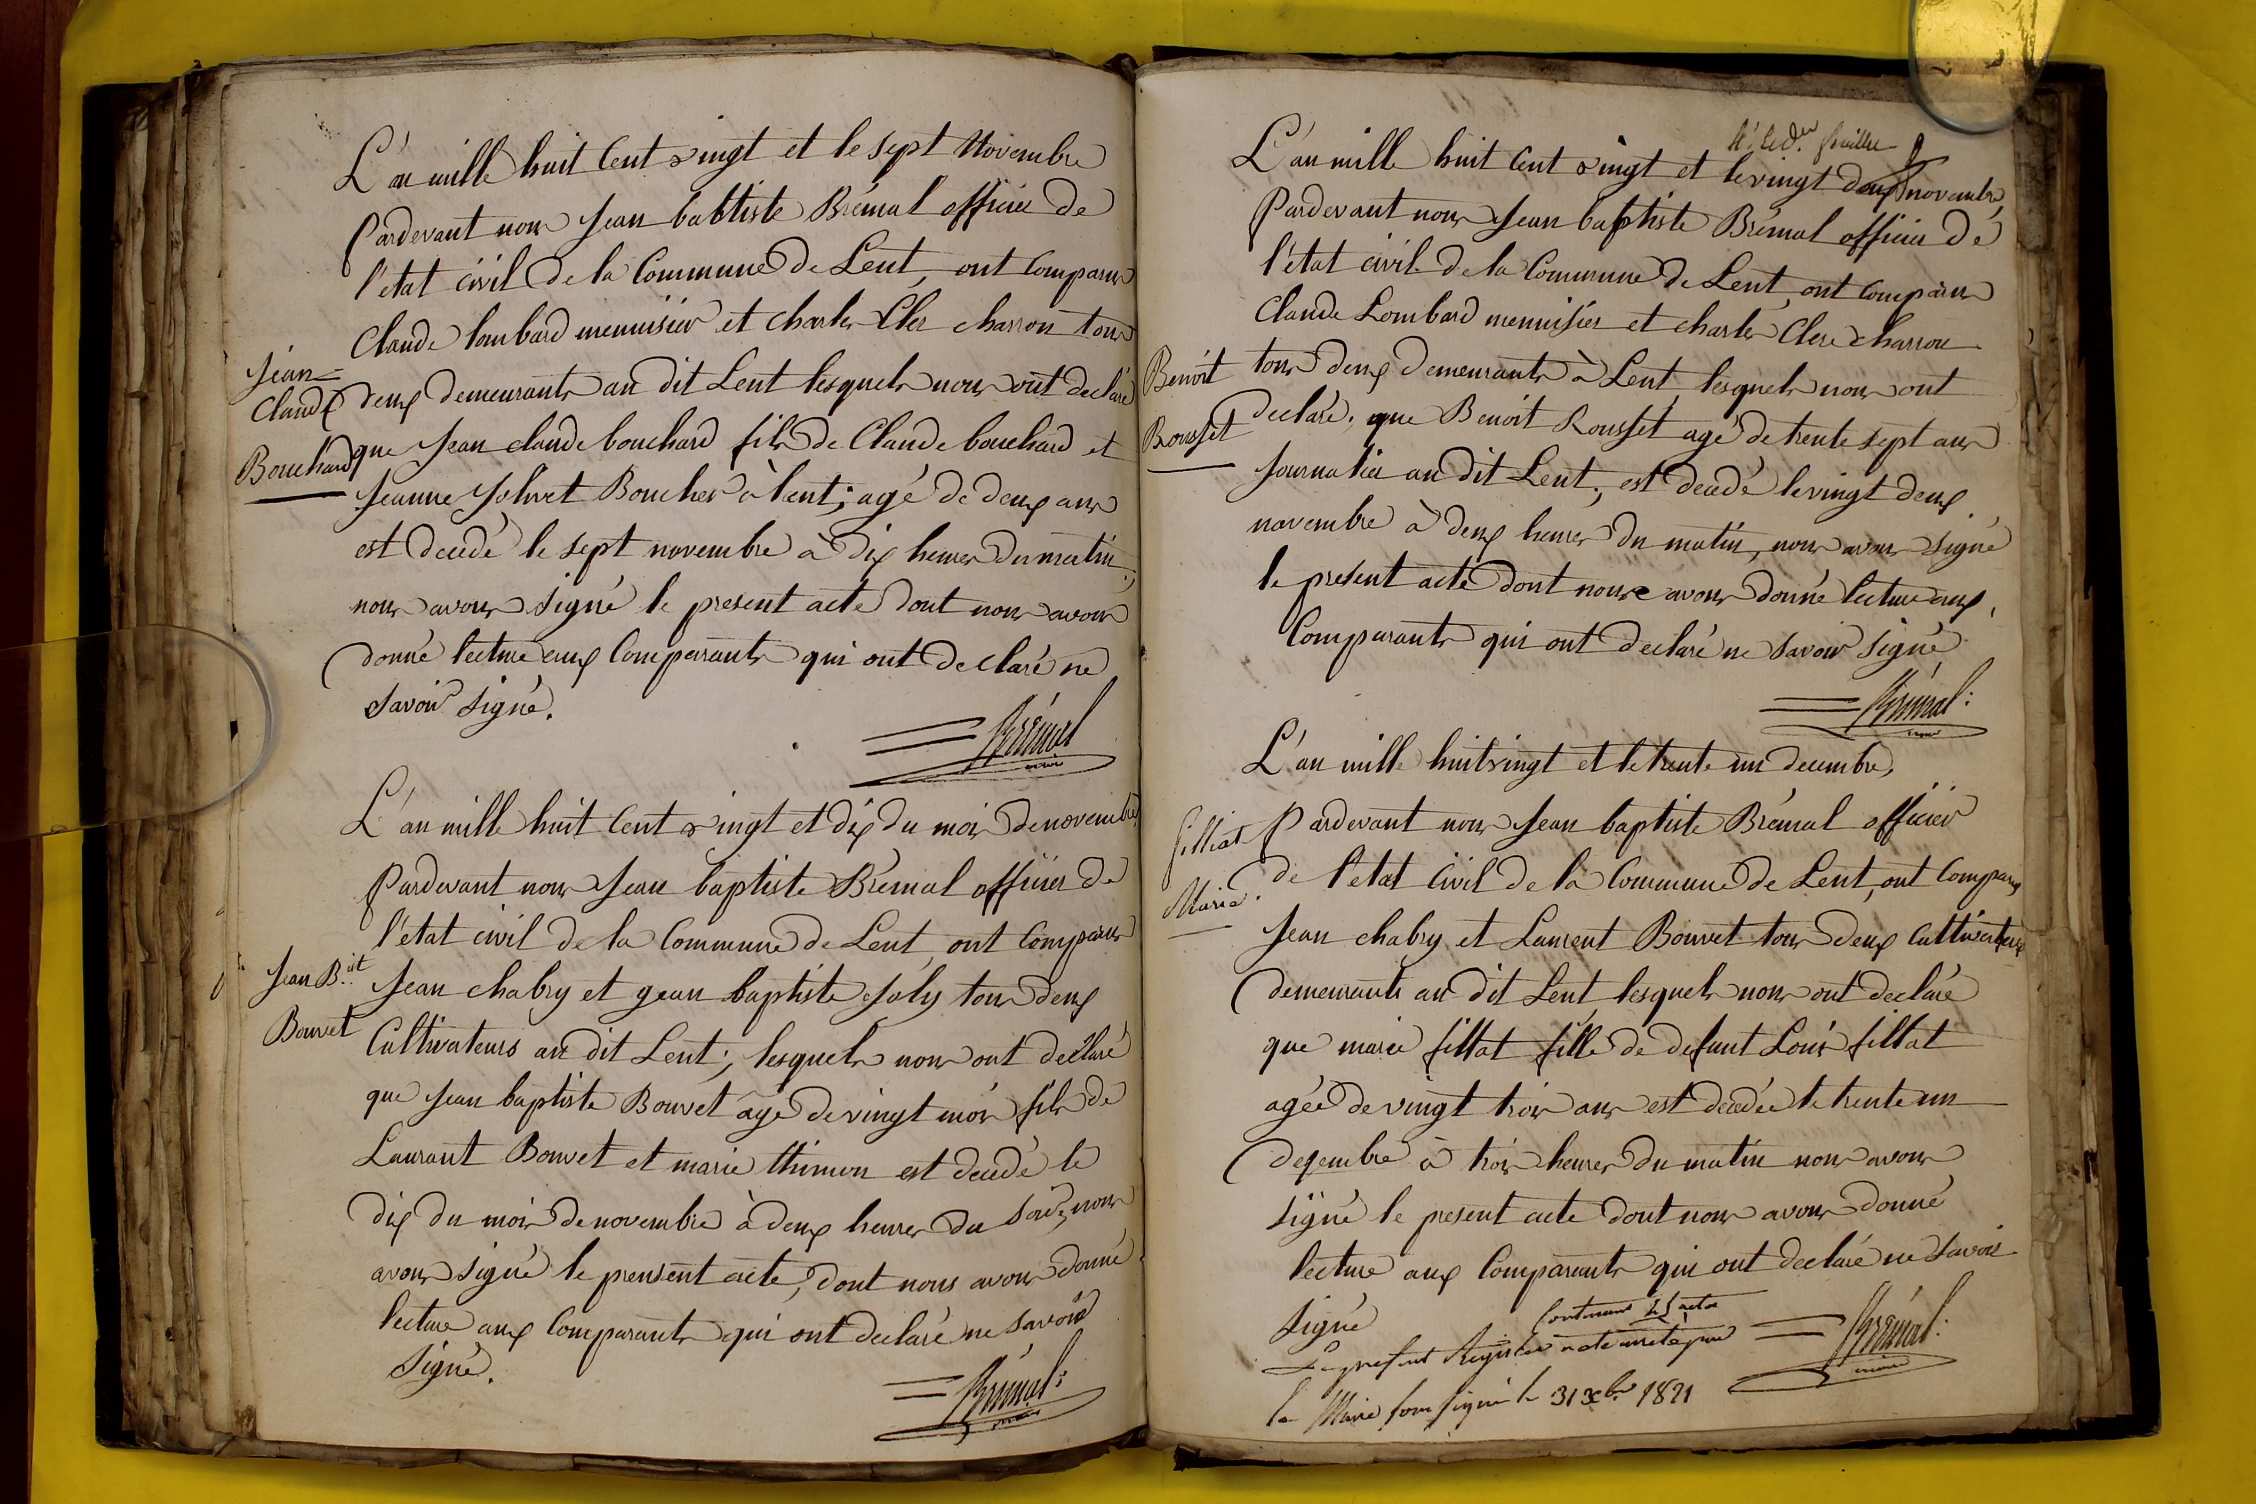 L'an mille huit Cent vingt et le sept Novembre
Pardevant nous Jean babtiste Brémal officier de
l'etat civil de la Commune de Lent, ont Comparus
Claude lombard menuisier et charles Cler charron tous
Jean
Claude
Bouchard
deux demeurants au dit Lent lesquels nous ont declaré
que Jean claude bouchard fils de Claude bouchard et
Jeanne Jolivet Boucher à lent; agé de deux ans
est decedé le sept novembre à dix heures du matin;
nous avons signé le present acte dont nous avons
donné lecture aux Comparants qui ont declaré ne
savoir signé.
Brémal
maire
L'an mille huit Cent vingt et dix du mois de novembre
Pardevant nous Jean baptiste Brémal officier de
l'état civil de la Commune de Lent, ont Comparus
Jean B.it
Bouvet
Jean chabry et gean baptiste Joly tous deux
Cultivateurs au dit Lent; lesquels nous ont declaré
que Jean baptiste Bouvet âgé de vingt mois fils de
Laurant Bouvet et marie thimon est decedé le
dix du mois de novembre à deux heures du soir, nous
avons signé le prensent acte, dont nous avons donné
lecture aux Comparants qui ont declaré ne savoir
Signé.
Brémal
maire
feuillet
L'an mille huit Cent vingt et le vingt deux novembre
Pardevant nous Jean baptiste Brémal officier de
l'état civil de la Commune de Lent, ont comparus
Claude Lombard menuisier et charles Clere charron
Benoit
Rousset
tous deux demeurants à Lent, lesquels nous ont
declaré, que Benoit Rousset agé de trente sept ans
Journalier au dit Lent; est decedé le vingt deux
novembre à deux heures du matin, nous avons signé
le present acte dont nous avons donné lecture aux
Comparants qui ont declaré ne savoir signé
Brémal
maire
L'an mille huit vingt et le trente un decembre,
filliat
Maria
Pardevant nous Jean baptiste Brémal officier
de l'etat Civil de la Commune de Lent, ont Comparus
Jean chabry et Laurent Bouvet tous deux Cultivateurs
demeurants au dit Lent lesquels nous ont declaré
que marie fillat fille de defunt Louis fillat
agée de vingt trois ans est decedée le trente un
decembre à trois heures du matin nous avons
signé le present acte dont nous avons donné
lecture aux Comparants qui ont declaré ne savoir
signé
Brémal
maire
Contenant actes
Le present Registre arreté par
le Maire soussigné le 31 xbre 1821